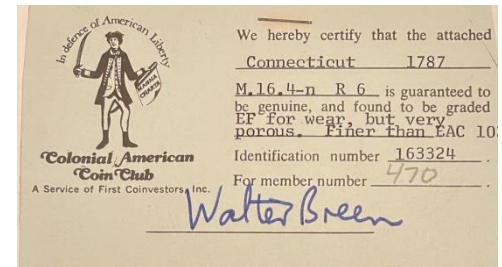 In defence of American Liberty
MAGNA
CHARTA
Colonial American
Coin Club
A Service of First Coinvestors, Inc.
We hereby certify that the attached
Connecticut 1787
M.16.4-n R 6 is guaranteed to
be genuine, and found to be graded
EF for wear, but very
porous. Finer than EAC 103
Identification number 163324 .
For member number 470 .
Walter Breen